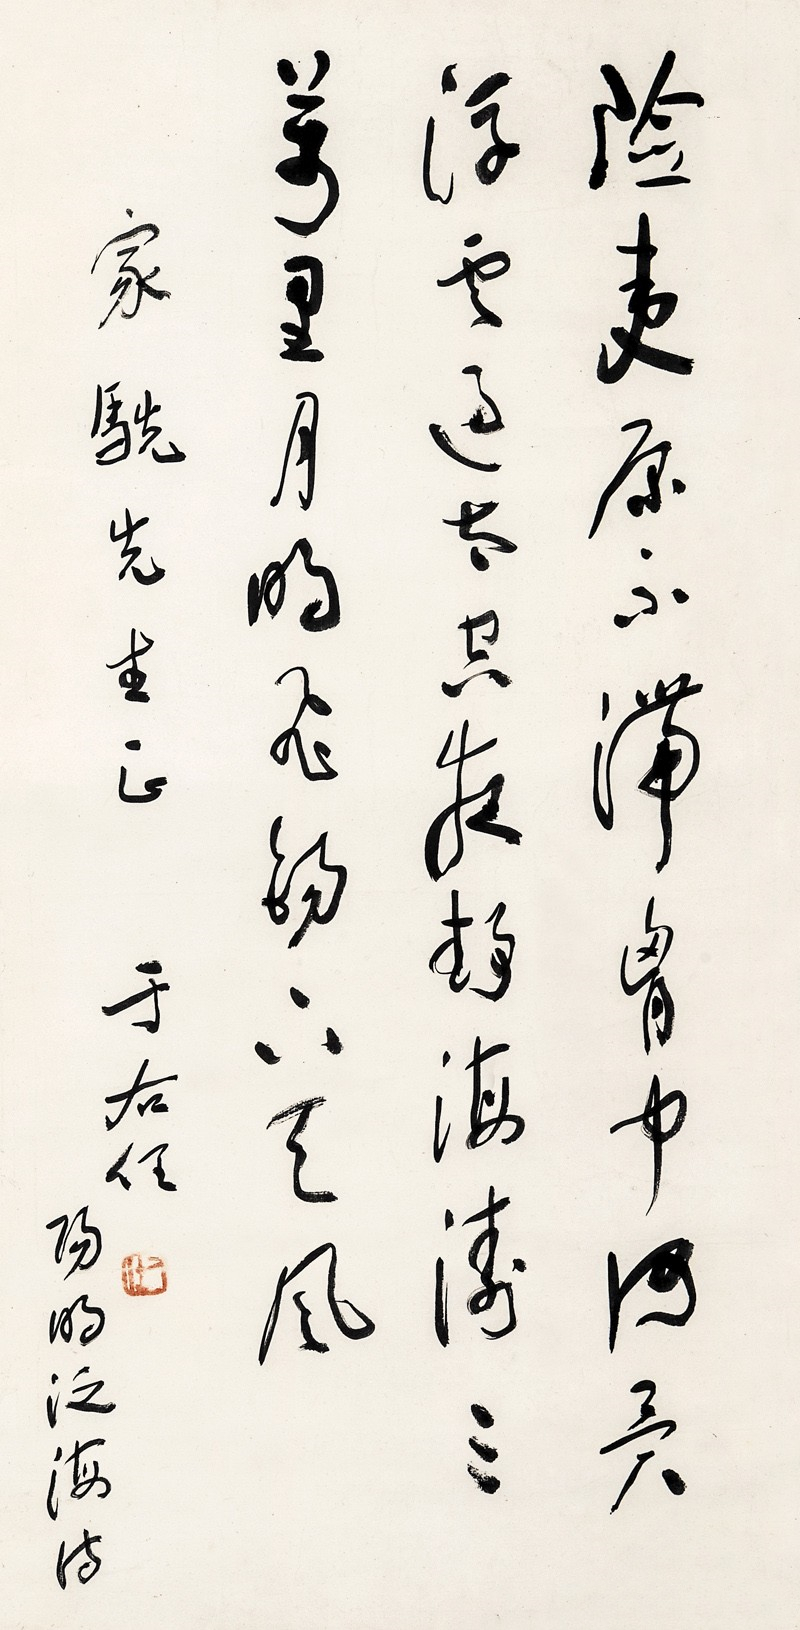 險夷原不滯胸中何異
浮雲過太空夜靜海濤三
萬里月明飛錫下天風
家駪先生正
于右任
陽明泛海詩